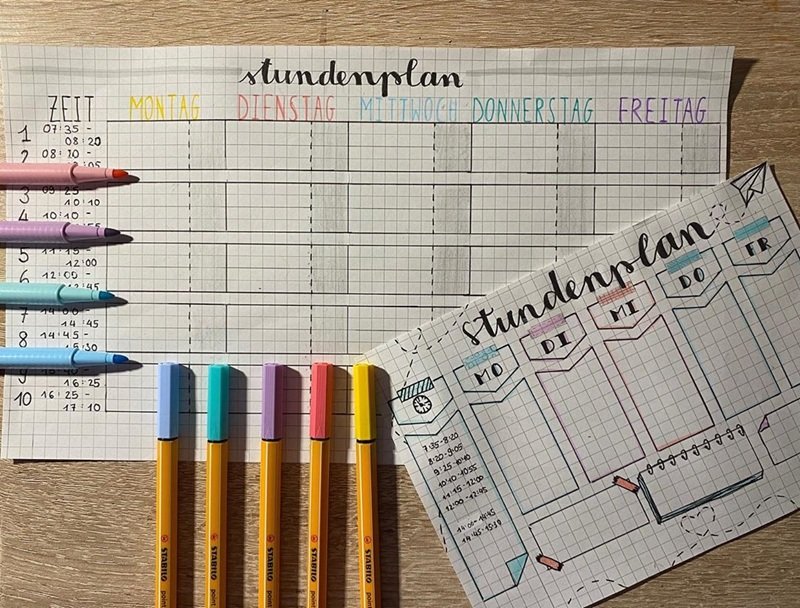 stundenplan
ZEIT MONTAG DIENSTAG MITTWOCH DONNERSTAG FREITAG
1 07:35 -
08:20
2 08:20 -
:05
3
10:10
4 10:10 -
5 11:15 -
12:00
6
:45
7 14:00 -
14:45
8 14:45 -
15:30
9
16:25
10 16:25 -
17:10
stundenplan
MO DI MI DO FR
7:35-8:20
8:20-9:05
9:25-10:10
10:10-10:55
11:15-12:00
12:00-12:45
14:00-14:45
STABILO point
STABILO point
STABILO point
STABILO point
STABILO point